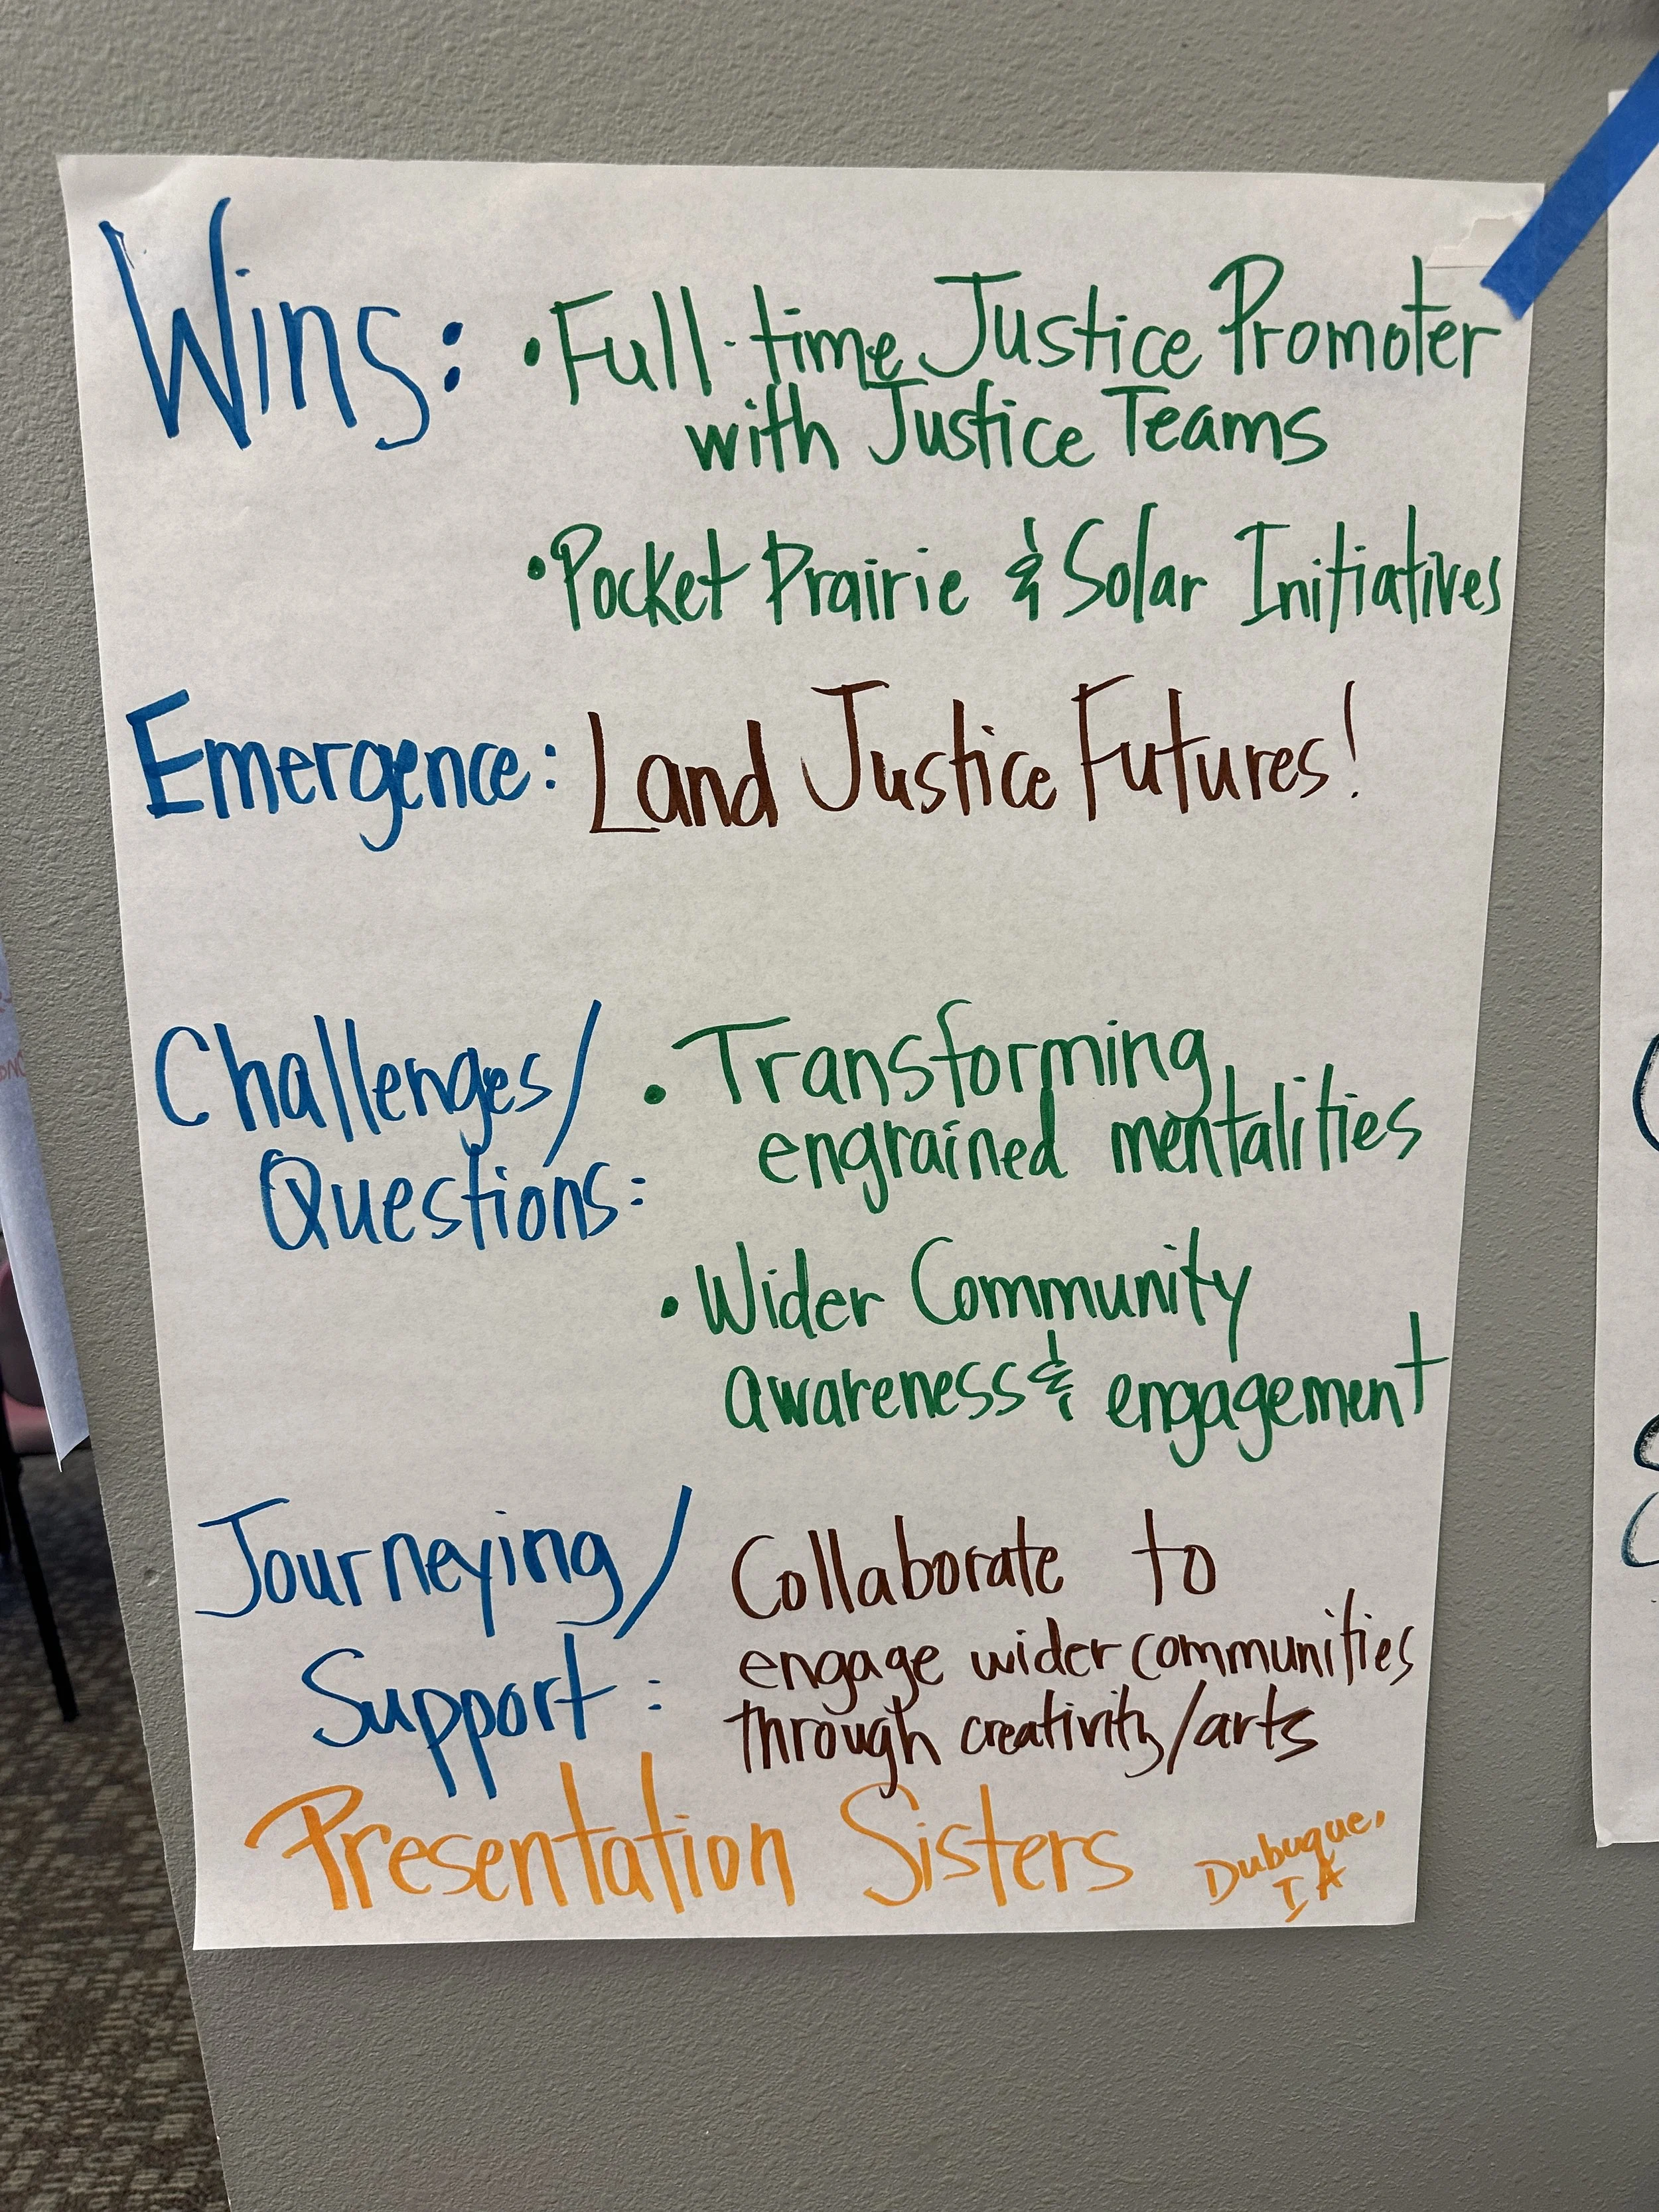 Wins: • Full-time Justice Promoter
with Justice Teams
• Pocket Prairie & Solar Initiatives
Emergence: Land Justice Futures!
Challenges/
Questions:
• Transforming
engrained mentalities
• Wider Community
awareness & engagement
Journeying/
Support:
Collaborate to
engage wider communities
through creativity/arts
Presentation Sisters
Dubuque,
IA